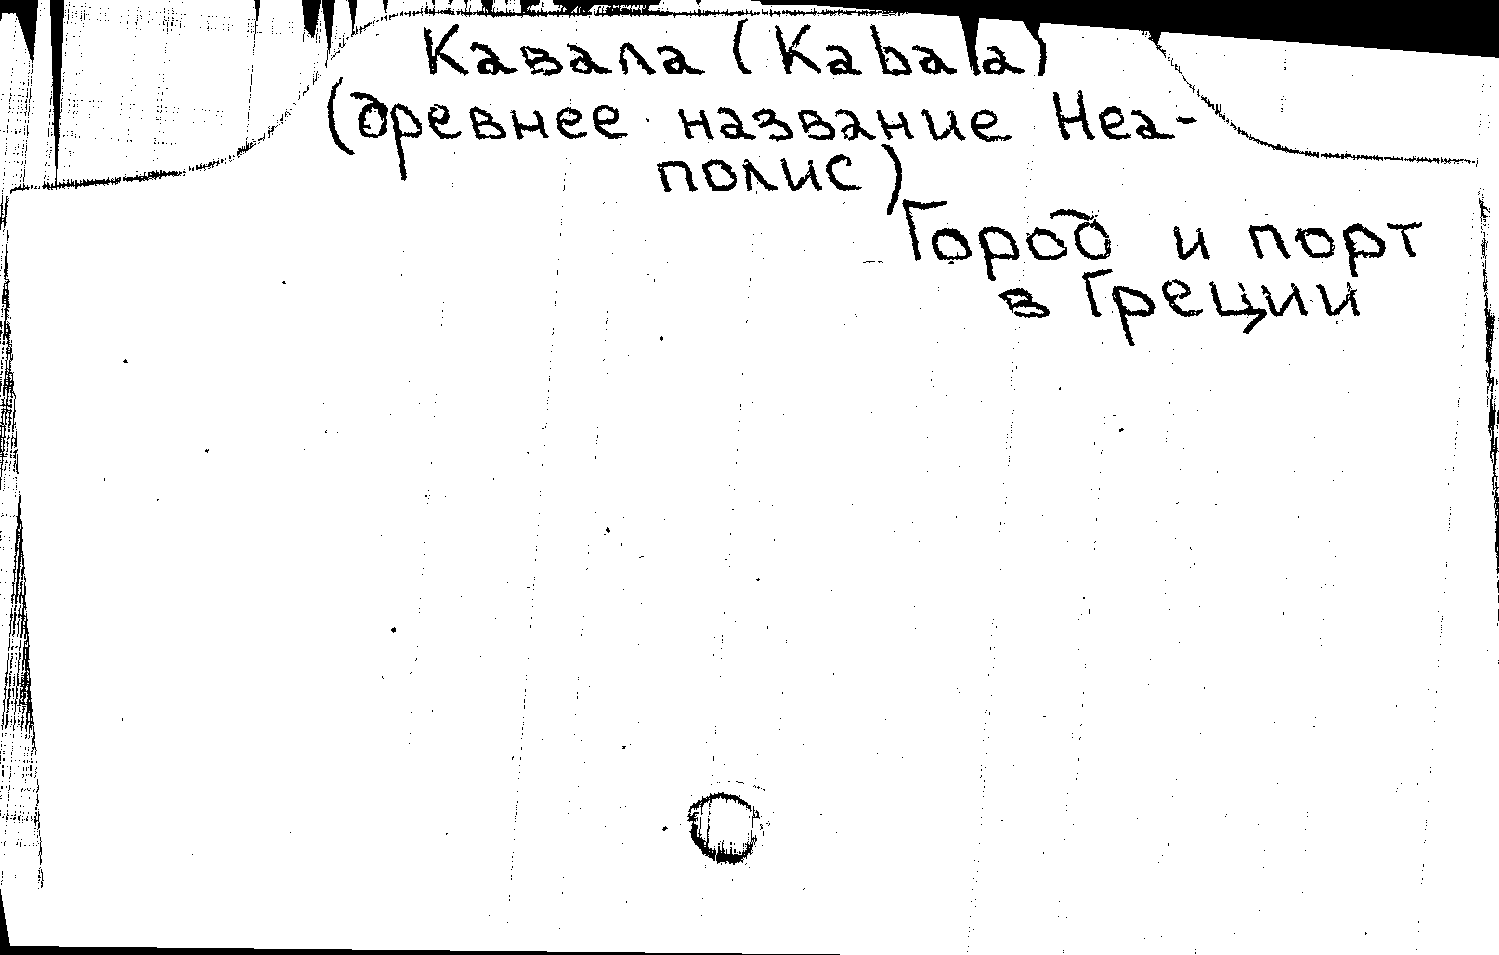 Кавала (Kabala)
(древнее название Неа-
полис)
Город и порт
в Греции